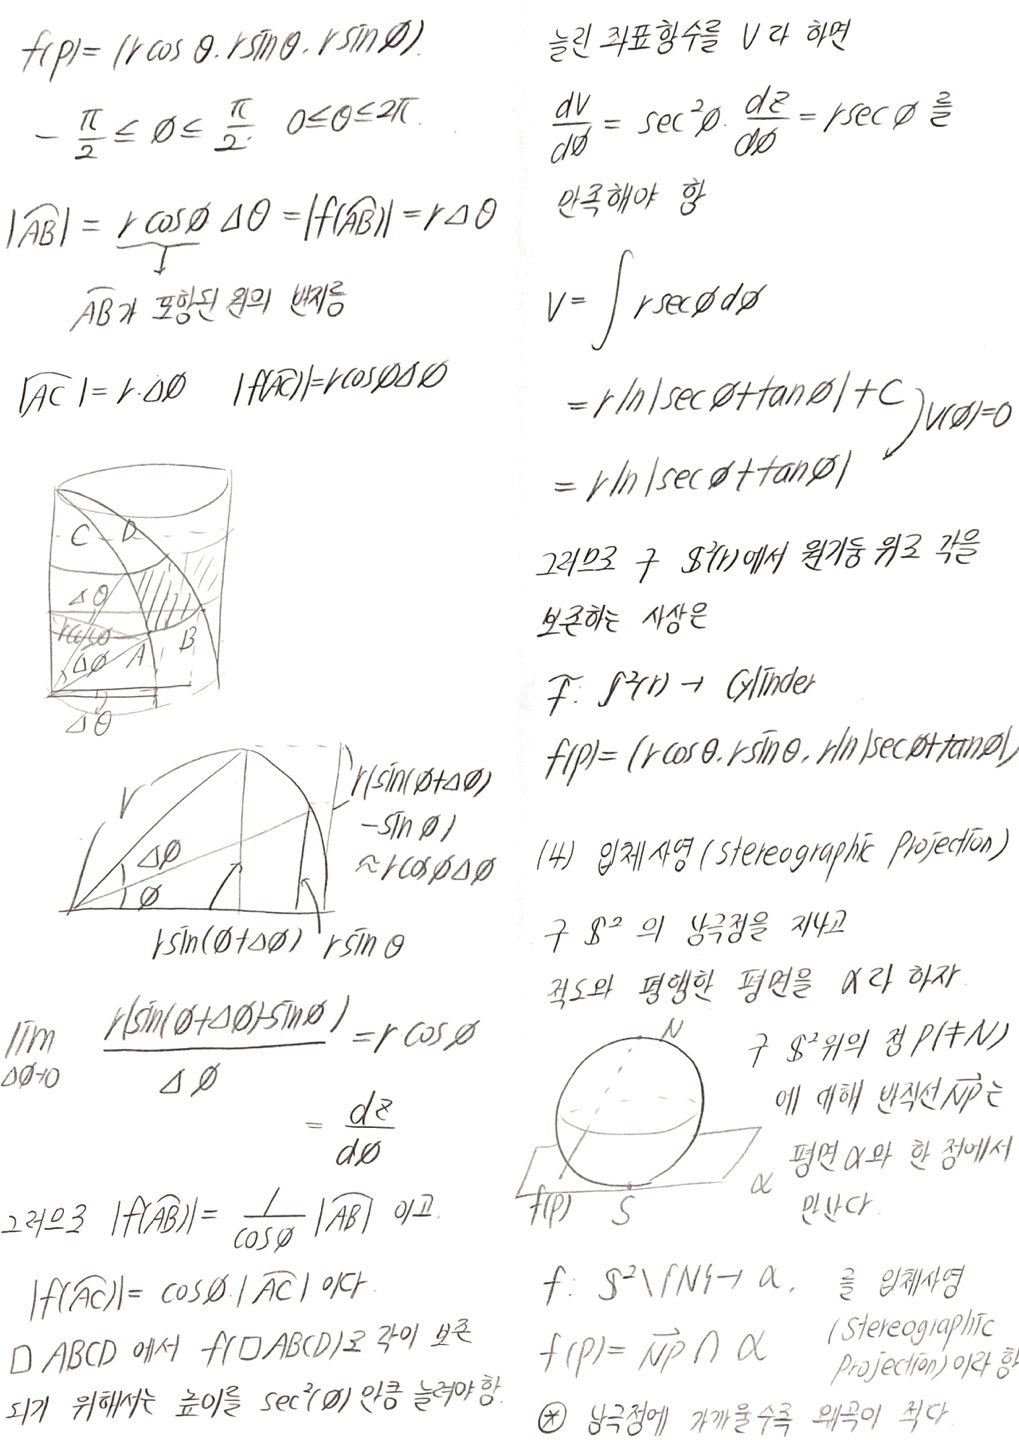 f(p)= (rcos θ. rsinθ. rsinφ).
- π/2 ≤ φ ≤ π/2. 0≤θ≤2π.
|AB| = r cosφ Δθ = |f(AB)| = rΔθ
AB가 포함된 원의 반지름
|AC| = r·Δφ |f(AC)|=rcosφΔφ
C D
Δθ
rcosφ
Δφ A B
Δθ
r
r(sin(φ+Δφ)
-sin φ)
≈rcosφΔφ
Δφ
φ
rsin(φ+Δφ) rsin θ
lim Δφ→0 r(sin(φ+Δφ)-sinφ)/Δφ = r cosφ
= dz/dφ
그러므로 |f(AB)| = 1/cosφ |AB| 이고.
|f(AC)|= cosφ.|AC| 이다.
□ABCD 에서 f(□ABCD)로 각이 보존
되기 위해서는 높이를 sec²(φ) 만큼 늘려야 함.
늘린 좌표함수를 V라 하면
dV/dφ = sec²φ. dz/dφ = rsecφ 를
만족해야 함
V= ∫ rsecφdφ
= rln|secφ+tanφ| +C
V(0)=0
= rln|secφ+tanφ|
그러므로 구 S²(r)에서 원기둥 위로 각을
보존하는 사상은
f: S²(r) → Cylinder
f(p)= (rcosθ. rsinθ. rln|secφ+tanφ|)
(4) 입체사영 (Stereographic Projection)
구 S² 의 남극점을 지나고
적도와 평행한 평면을 α라 하자.
N
f(p) S α
구 S²위의 점 P(≠N)
에 대해 반직선 NP는
평면 α와 한 점에서
만난다.
f: S²\{N}→ α. 를 입체사영
f(p)= NP ∩ α (Stereographic
Projection)이라 함
⊛ 남극점에 가까울수록 왜곡이 적다.